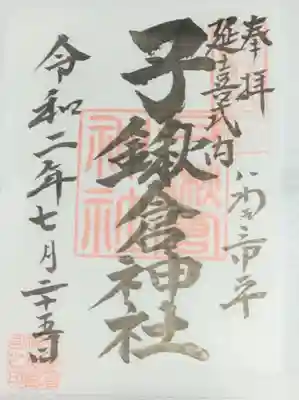 奉拝
延喜式内
いわき市平
子鍬倉神社
令和二年七月二十五日